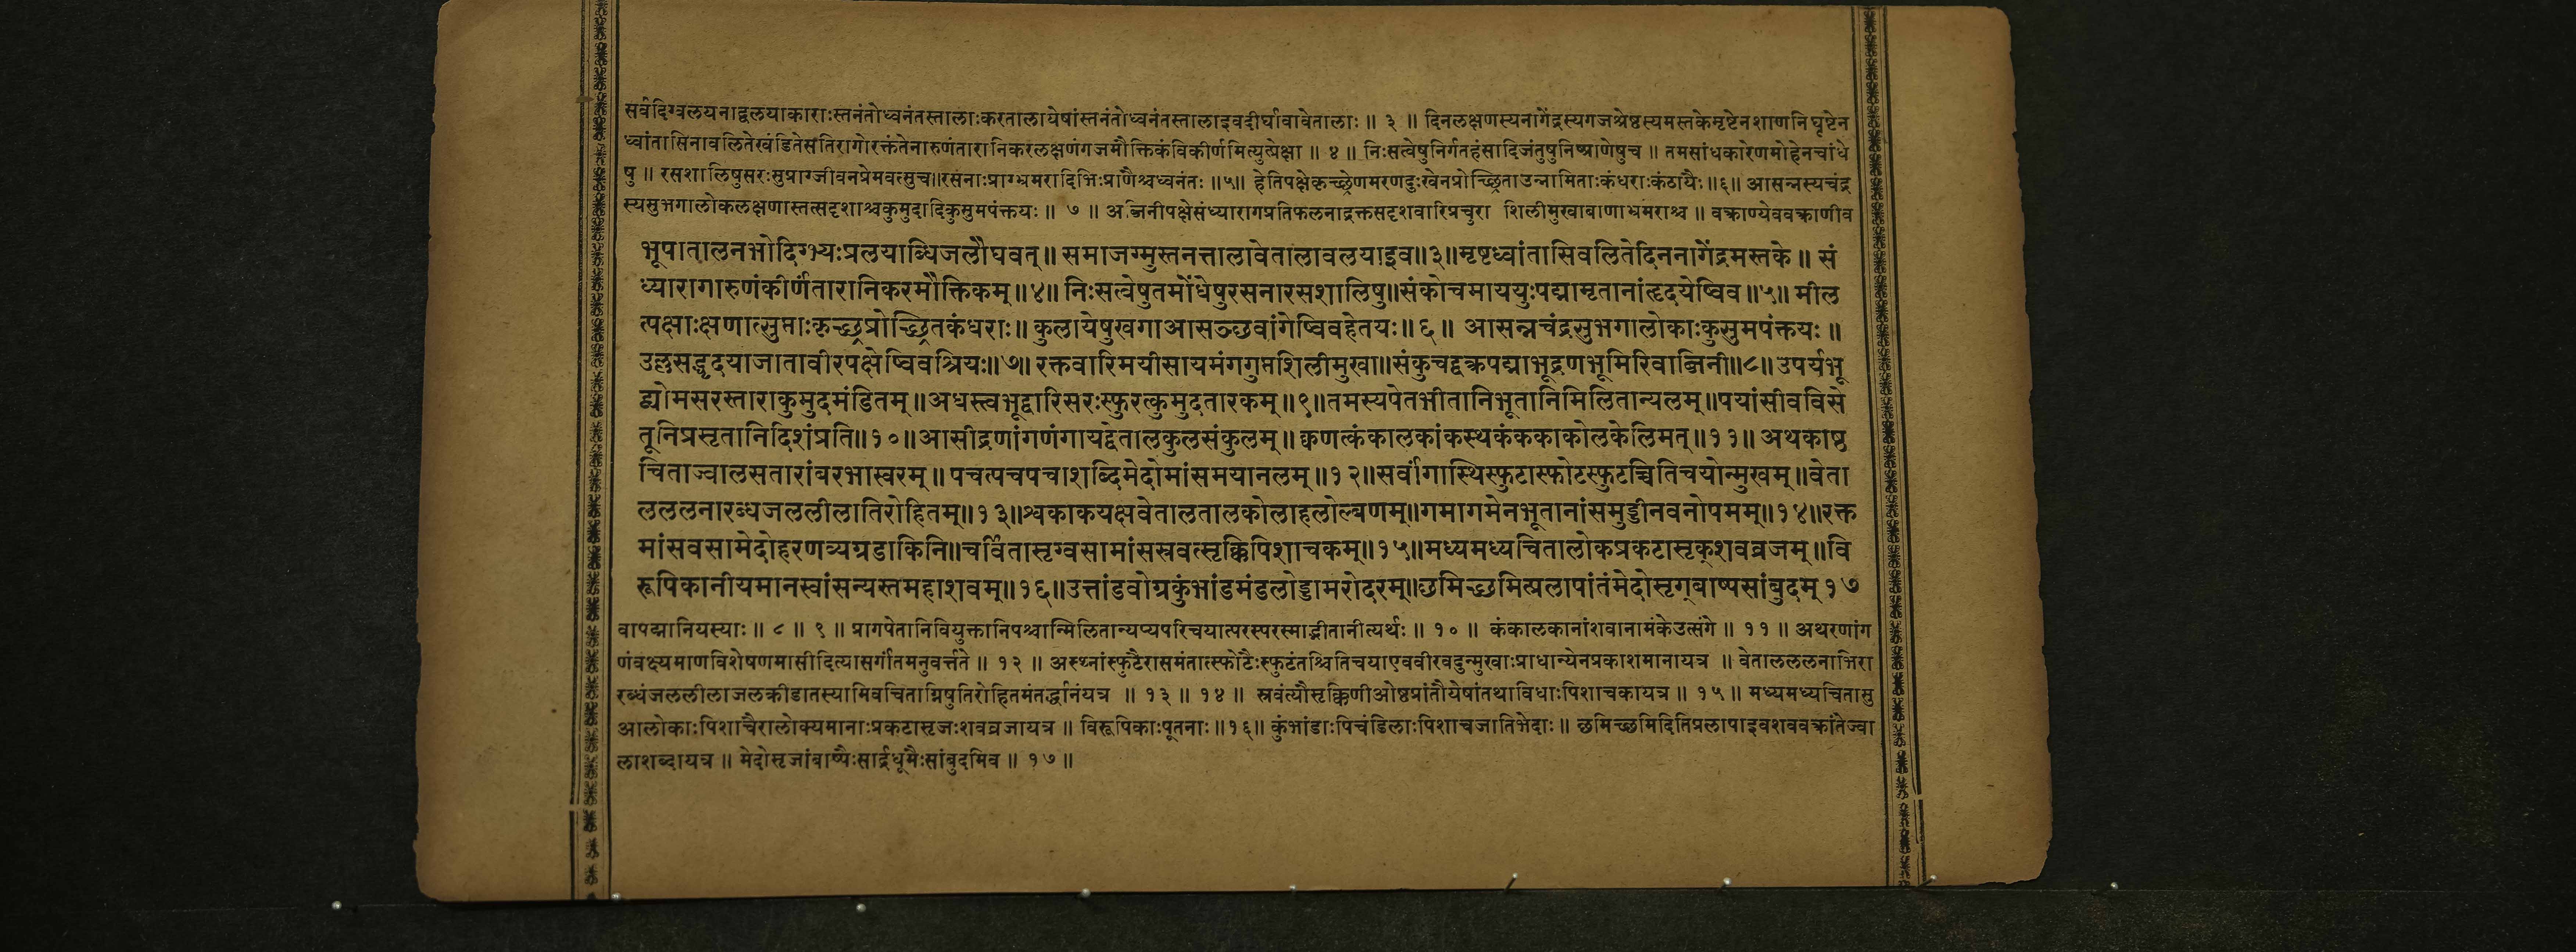 सर्वदिग्वलयनाद्वलयाकाराःस्तनंतोध्वनंतस्तालाःकरतालायेषांस्तनंतोध्वनंतस्तालाइवदीर्घावावेतालाः ॥ ३ ॥ दिनलक्षणस्यनागेंद्रस्यगजश्रेष्ठस्यमस्तकेमृष्टेनशाणनिघृष्टेन
ध्वांतासिनावलितेखंडितेसतिरागोरक्तंतेनारुणंतारानिकरलक्षणंगजमौक्तिकंविकीर्णमित्युत्प्रेक्षा ॥ ४ ॥ निःसत्वेषुनिर्गतहंसादिजंतुषुनिष्प्राणेषुच ॥ तमसांधकारेणमोहेनचांधे
षु ॥ रसशालिषुसरःसुप्राग्जीवनप्रेमवत्सुच॥रसनाःप्राग्भ्रमरादिभिःप्राणैश्चध्वनंतः ॥५॥ हेतिपक्षेकृच्छ्रेणमरणदुःखेनप्रोच्छ्रिताउन्नामिताःकंधराःकंठायैः॥६॥ आसन्नस्यचंद्र
स्यसुभगालोकलक्षणास्तत्सदृशाश्चकुमुदादिकुसुमपंक्तयः ॥ ७ ॥ अब्जिनीपक्षेसंध्यारागप्रतिफलनाद्रक्तसदृशवारिप्रचुरा शिलीमुखाबाणाभ्रमराश्च ॥ वक्राण्येववक्राणीव
भूपातालनभोदिग्भ्यःप्रलयाब्धिजलौघवत् ॥ समाजग्मुस्तनत्तालावेतालावलयाइव॥३॥मृष्टध्वांतासिवलितेदिननागेंद्रमस्तके ॥ सं
ध्यारागारुणंकीर्णंतारानिकरमौक्तिकम् ॥४॥ निःसत्वेषुतमोंधेषुरसनारसशालिषु॥संकोचमाययुःपद्मामृतानांहृदयेष्विव ॥५॥ मील
त्पक्षाःक्षणात्सुप्ताःकृच्छ्रप्रोच्छ्रितकंधराः॥ कुलायेषुखगाआसञ्छवांगेष्विवहेतयः॥६॥ आसन्नचंद्रसुभगालोकाःकुसुमपंक्तयः ॥
उल्लसद्धृदयाजातावीरपक्षेष्विवश्रियः॥७॥ रक्तवारिमयीसायमंगगुप्तशिलीमुखा॥संकुचद्वक्रपद्माभूद्रणभूमिरिवाब्जिनी॥८॥ उपर्यभू
द्व्योमसरस्ताराकुमुदमंडितम् ॥अधस्त्वभूद्वारिसरःस्फुरत्कुमुदतारकम् ॥९॥तमस्यपेतभीतानिभूतानिमिलितान्यलम् ॥पयांसीवविसे
तूनिप्रसृतानिदिशंप्रति॥१०॥आसीद्रणांगणंगायद्वेतालकुलसंकुलम् ॥ क्वणत्कंकालकांकस्थकंककाकोलकेलिमत् ॥११॥ अथकाष्ठ
चिताज्वालसतारांबरभास्वरम् ॥ पचत्पचपचाशब्दिमेदोमांसमयानलम् ॥१२॥सर्वांगास्थिस्फुटास्फोटस्फुटच्चितिचयोन्मुखम् ॥वेता
लललनारब्धजललीलातिरोहितम्॥१३॥श्वकाकयक्षवेतालतालकोलाहलोल्बणम्॥गमागमेनभूतानांसमुड्डीनवनोपमम्॥१४॥रक्त
मांसवसामेदोहरणव्यग्रडाकिनि॥चर्वितासृग्वसामांसस्रवत्सृक्किपिशाचकम्॥१५॥मध्यमध्यचितालोकप्रकटासृक्शवव्रजम्॥वि
रूपिकानीयमानस्वांसन्यस्तमहाशवम्॥१६॥उत्तांडवोग्रकुंभांडमंडलोड्डामरोदरम्॥छमिच्छमित्प्रलापांतंमेदोसृग्बाष्पसांबुदम् १७
वापद्मानियस्याः ॥ ८ ॥ ९ ॥ प्रागपेतानिवियुक्तानिपश्चान्मिलितान्यप्यपरिचयात्परस्परस्माद्भीतानीत्यर्थः ॥ १० ॥ कंकालकानांशवानामंकेउत्संगे ॥ ११ ॥ अथरणांग
णंवक्ष्यमाणविशेषणमासीदित्यासर्गांतमनुवर्त्तते ॥ १२ ॥ अस्थ्नांस्फुटैरासमंतात्स्फोटैःस्फुटंतश्चितिचयाएववीरवदुन्मुखाःप्राधान्येनप्रकाशमानायत्र ॥ वेतालललनाभिरा
रब्धंजललीलाजलक्रीडातस्यामिवचिताग्निषुतिरोहितमंतर्द्धानंयत्र ॥ १३ ॥ १४ ॥ स्रवंत्यौसृक्किणीओष्ठप्रांतौयेषांतथाविधाःपिशाचकायत्र ॥ १५ ॥ मध्यमध्यचितासु
आलोकाःपिशाचैरालोक्यमानाःप्रकटासृजःशवव्रजायत्र ॥ विरूपिकाःपूतनाः ॥१६॥ कुंभांडाःपिचंडिलाःपिशाचजातिभेदाः ॥ छमिच्छमिदितिप्रलापाइवशववक्रांतेज्वा
लाशब्दायत्र ॥ मेदोसृजांबाष्पैःसार्द्रधूमैःसांबुदमिव ॥ १७ ॥